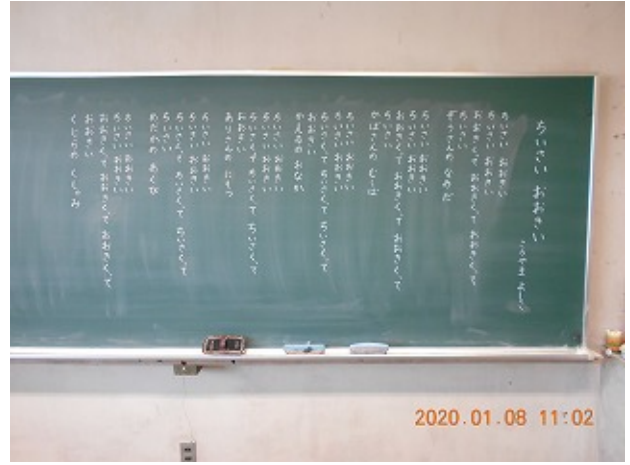 ちいさい おおきい
こうやま よしこ
ちいさい おおきい
ちいさい おおきい
おおきくって おおきくって おおきくって
ちいさい
ぞうさんの なみだ
ちいさい おおきい
ちいさい おおきい
おおきくって おおきくって おおきくって
ちいさい
かばさんの むしば
ちいさい おおきい
ちいさい おおきい
ちいさくって ちいさくって ちいさくって
おおきい
かえるの おなか
ちいさい おおきい
ちいさい おおきい
ちいさくって ちいさくって ちいさくって
おおきい
ありさんの にもつ
ちいさい おおきい
ちいさい おおきい
ちいさくって ちいさくって ちいさくって
ちいさい
めだかの あくび
ちいさい おおきい
ちいさい おおきい
おおきくって おおきくって おおきくって
おおきい
くじらの くしゃみ
2020.01.08 11:02